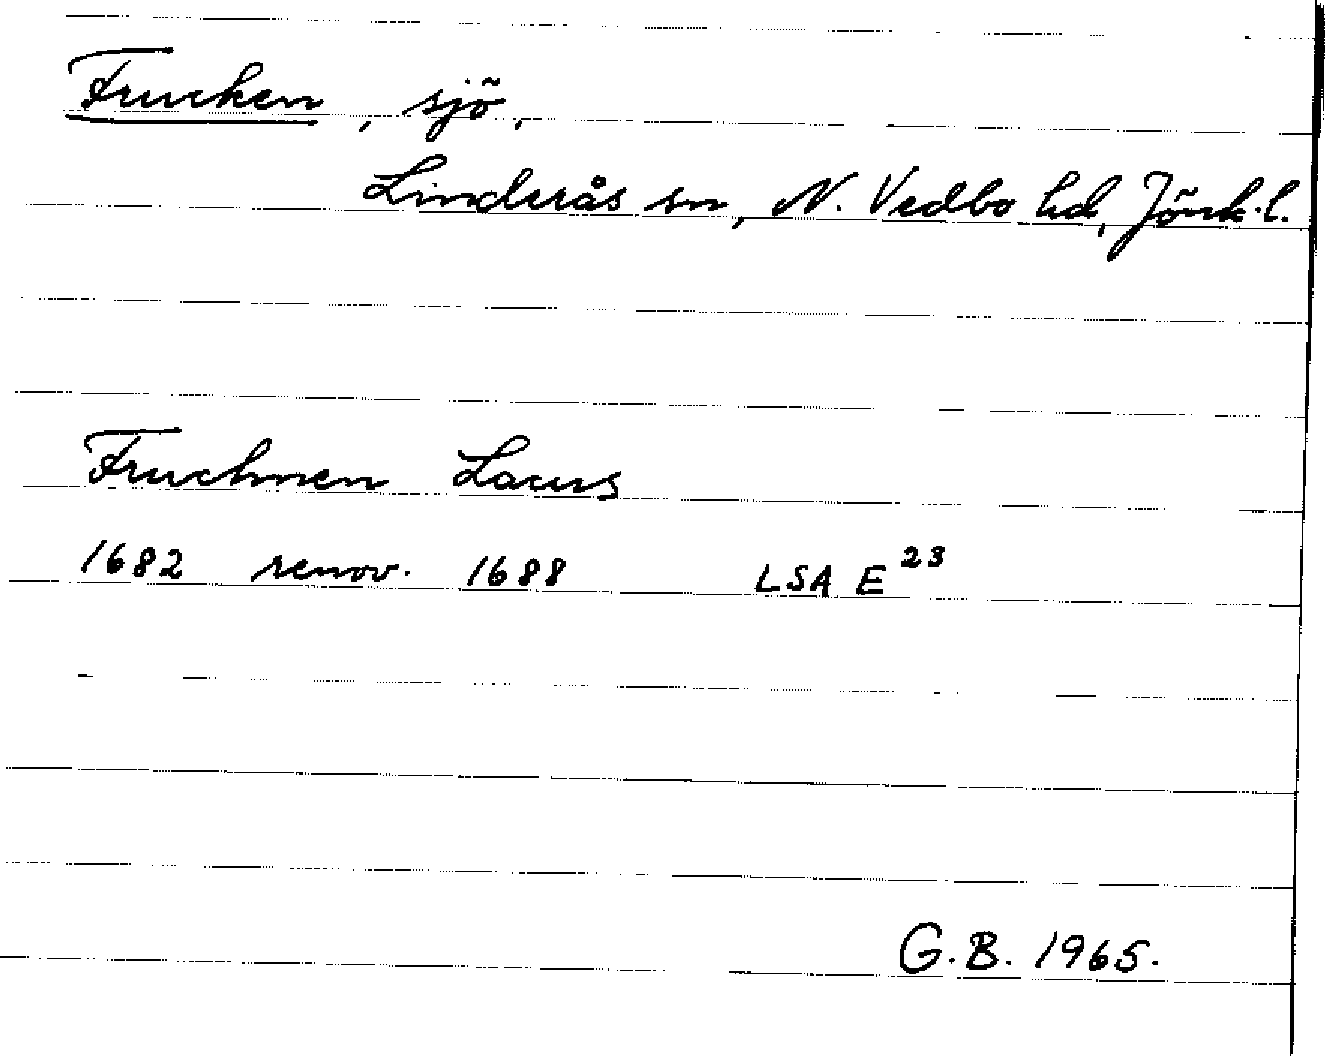 Frucken, sjö,
Linderås sn, N. Vedbo hd, Jönk.l.
Fruchnen Lacus
1682 renov. 1688 LSA E 23
G.B. 1965.